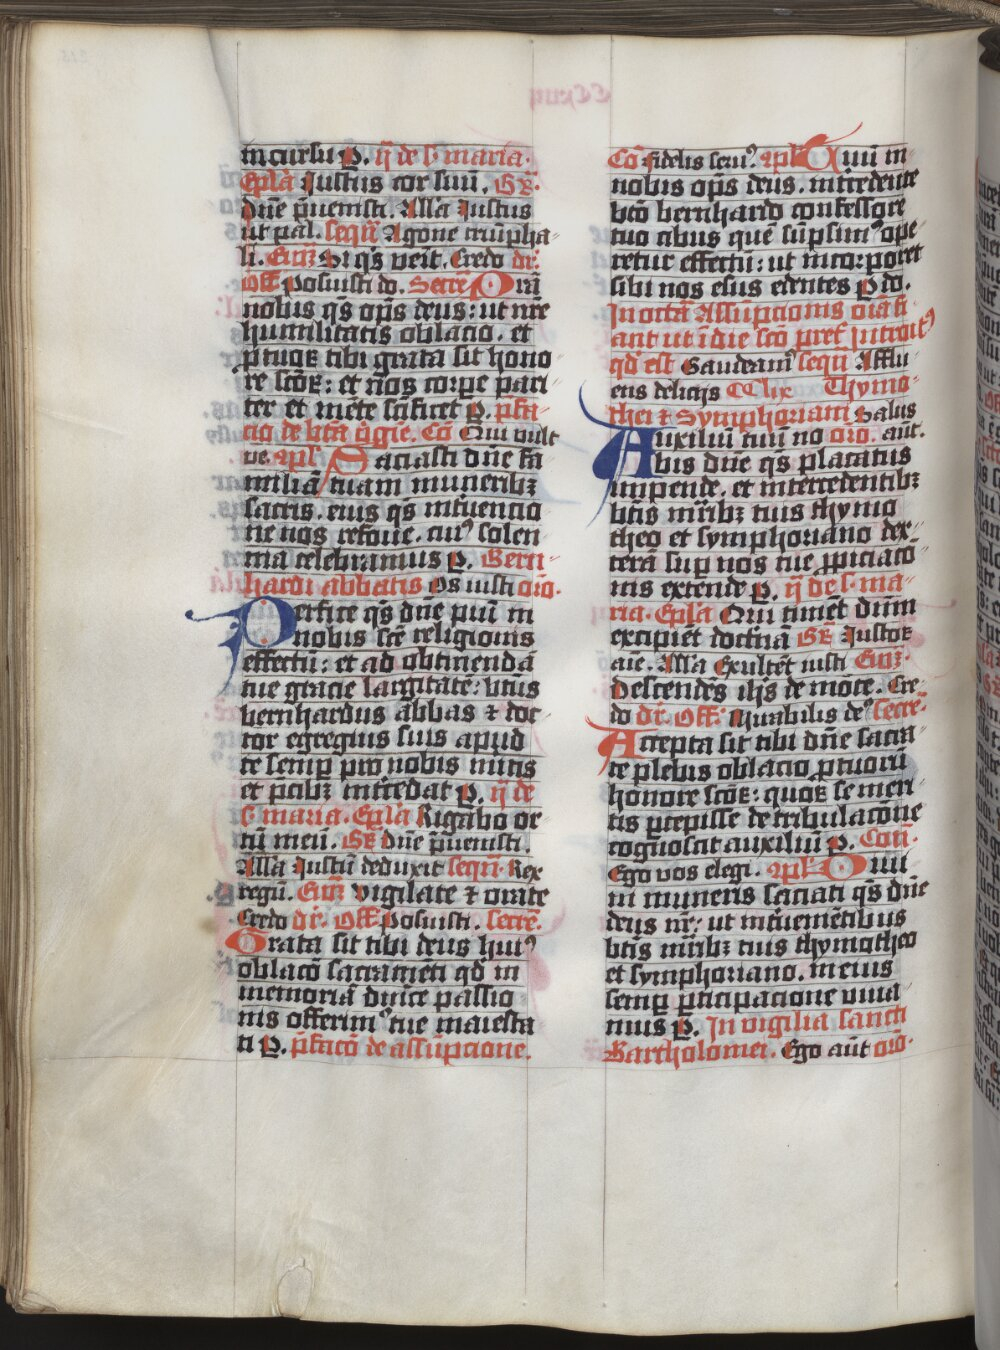 incursu P. ij de s. maria.
Epl̄a Iustus cor suū. Gr̄.
Dn̄e p̄uenisti. All̄a Iustus
ut pal. seqū Agone triūpha
li. Euḡ Si q̄s veīt. Credo dr̄.
Off̄ Posuisti do. Secret̄ Orā
nobis q̄s op̄s deus: ut nr̄e
humilitatis oblacio. et
p̄tuoꝝ tibi grata sit hono
re sc̄oꝝ: et nos corpe pari
ter et mēte sc̄ificet P. p̄fa
cio de bt̄a v̄gīe. Cō Qui vult
ve. 2pl̄ Saciasti dn̄e fa
miliā tuam muneribꝫ
sacris. eius q̄s int̄uencio
ne nos refoue. cuiꝰ solen
nia celebramus P. Bern
hardi abbatis Os iusti oro.
Perfice q̄s dn̄e piū in
nobis sc̄e religionis
effectū: et ad obtinendā
tue gracie largitatē: bt̄us
bernhardus abbas ⁊ doc
tor egregius suis apud
te semp̄ pro nobis mitis
et p̄cibꝫ int̄cedat P. ij de
s. maria. Epl̄a Rigabo or
tū meū. Gr̄ Dn̄e p̄uenisti.
All̄a Iustū deduxit seqū. Rex
regū. Euḡ Vigilate ⁊ orate
Credo dr̄. Off̄ Posuisti. secret̄.
Grata sit tibi deus huiꝰ
oblacō sacramēti qd̄ in
memoriā dn̄ice passio
nis offerimꝰ tue maiesta
ti P. p̄facō de assūpcione.
Cō Fidelis seruꝰ. 2pl̄ Qui in
nobis op̄s deus. intredente
bt̄o bernhardo confessore
tuo cibus quē sūpsimꝰ ope
retur effectū: ut incorporet
sibi nos eius edentes P id.
In octā Assūpcionis oīa fi
ant ut ī die sc̄o pret̄ Introitꝰ
qd̄ est Gaudeamꝰ seqū Afflu
ens delicijs CClix Thymo
thei ⁊ Symphoriani Salus
Auxiliū tuū no oro. aūt.
bis dn̄e q̄s placatus
impende. et intercedentibꝫ
bt̄is mr̄ibꝫ tuis thymo
theo et symphoriano dex
terā sup̄ nos tue ꝓpiciacō
nis extende P. ij de s. ma
ria. Epl̄a Qui timēt dn̄m
excipiēt doctrinā Gr̄ Iustoꝝ
aīe. All̄a Exultēt iusti Euḡ.
Descendēs ih̄s de mōte. Cre
do dr̄. Off̄. Mirabilis deꝰ secre.
Accepta sit tibi dn̄e sacra
te plebis oblacio ꝓ tuorū
honore sc̄oꝝ: quoꝝ se meri
tis p̄cepisse de tribulacōne
cognoscat auxiliū P. Com̄.
Ego vos elegi. 2pl̄ Diui
ni muneris saciati q̄s dn̄e
deus nr̄: ut int̄uenīetibus
bt̄is mr̄ibꝫ tuis thymotheo
et symphoriano. in eius
semp̄ p̄ticipacione viua
mus P. In vigilia sancti
Bartholomei. Ego aūt oro.